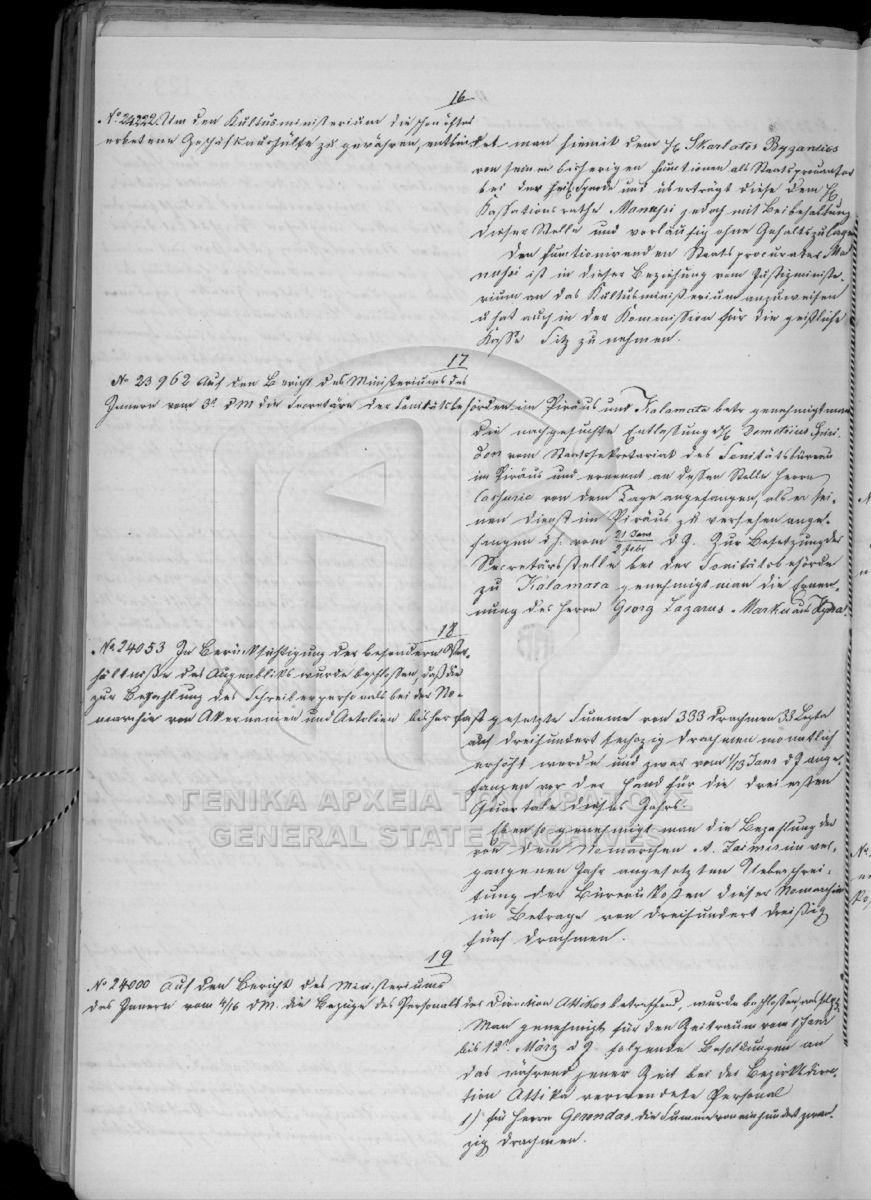 16
No 24222. Um den Kultusministerium die schon öfter
erbetene Geschäftsaushülfe zu gewähren, entbindet man hiemit den H. Skarlatos Byzantios
von seinen bisherigen Functionen als Staatsprocurator
bei der hei. Synode und überträgt diese dem H.
Kassationsrathe Manusi jedoch mit Beibehaltung
dieser Stelle und vorläufig ohne Gehaltszulage
Den functionirenden Staatsprocurator Ma-
nusi ist in dieser Beziehung vom Justizministe-
rium an das Kultusministerium anzuweisen
u hat auch in der Kommission für die geistliche
Kasse Sitz zu nehmen.
17
No 23962 Auf den Bericht des Ministeriums des
Innern vom 3t. dM die Secretäre der Sanitätsbehörden im Piräus und Kalamata betr. genehmigt man
die nachgesuchte Entlassung d. H. Demetrius
vom Staatssekretariat des Sanitätsbüreau
im Piräus und ernennt an dessen Stelle Herrn
von dem Tage angefangen, als er sei-
nen Dienst im Piräus zu versehen ange-
fangen d.h. vom 21 Jans / 2 Febr d J. Zur Besetzung der
Secretärsstelle bei der Sanitätsbehörde
zu Kalamata genehmigt man die Ernen-
nung des Herrn Georg Lazarus Marku aus Hydra.
18
No 24053 In Berücksichtigung der besondern Ver-
hältnisse des Augenbliks wurde beschlossen, daß die
zur Bezahlung des Schreiberpersonals bei der No-
marchie von Akarnanien und Aetolien bisher fest gesetzte Summe von 333 Drachmen 33 Lepta
auf dreihundert sechszig Drachmen monatlich
erhöht werde und zwar vom 1/13 Jans d J ange-
fangen vor der Hand für die drei ersten
Quartale dieses Jahrs.
Eben so genehmigt man die Bezahlung der
von dem Nomarchen A. Zaimis im ver-
gangenen Jahr angesetzten Ueberschrei-
tung der Büreaukosten dieser Nomarchie
im Betrage von dreihundert dreißig
fünf Drachmen.
19
No 24000 Auf den Bericht des Ministeriums
des Innern vom 4/16 dM. die Bezüge des Personals der Direction Attikas betreffend, wurde beschlossen, was folgt:
Man genehmigt für den Zeitraum vom 1 Jans
bis 12n März d J. folgende Besoldungen an
das während jener Zeit bei der Bezirksdirec-
tion Attika verwendete Personal
1) für Herrn Gerondas die Summe von einhundert zwan-
zig Drachmen.
ΓΕΝΙΚΑ ΑΡΧΕΙΑ ΤΟΥ ΚΡΑΤΟΥΣ
GENERAL STATE ARCHIVES